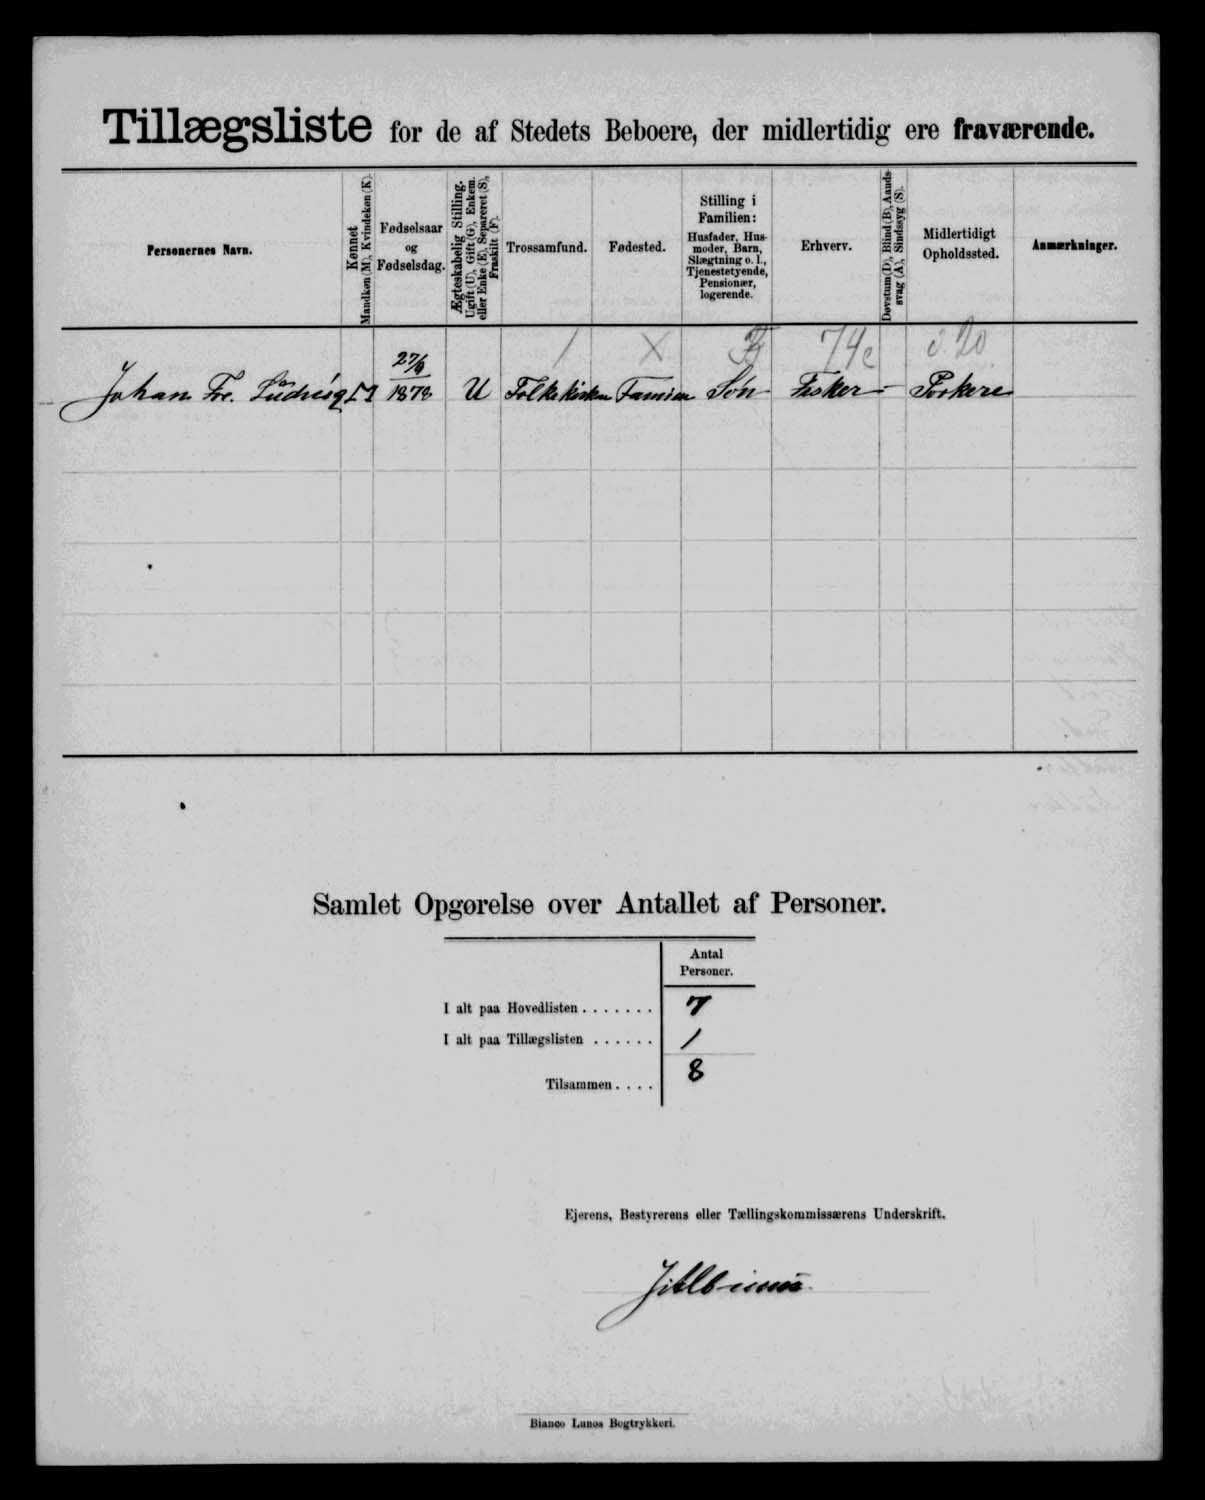 Tillægsliste for de af Stedets Beboere, der midlertidig ere fraværende.
Personernes Navn.
Kønnet
Mandkøn (M), Kvindekøn (K).
Fødselsaar
og
Fødselsdag.
Ægteskabelig Stilling.
Ugift (U), Gift (G), Enkem.
eller Enke (E), Separeret (S),
Fraskilt (F).
Trossamfund.
Fødested.
Stilling i
Familien:
Husfader, Hus-
moder, Barn,
Slægtning o. l.,
Tjenestetyende,
Pensionær,
logerende.
Erhverv.
Døvstum (D), Blind (B), Aands-
svag (A), Sindssyg (S).
Midlertidigt
Opholdssted.
Anmærkninger.
/ X 74c 20
Johan Fre. Ludvig M 27/9 1878 U Folkekirken Famien Søn Fisker - Porkere
Samlet Opgørelse over Antallet af Personer.
Antal
Personer.
I alt paa Hovedlisten . . . . . . . 7
I alt paa Tillægslisten . . . . . . 1
Tilsammen . . . . 8
Ejerens, Bestyrerens eller Tællingskommissærens Underskrift.
Bianco Lunos Bogtrykkeri.